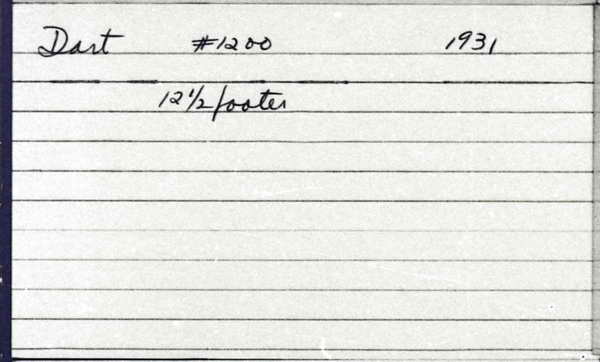 Dart #1200 1931
12 1/2 footer